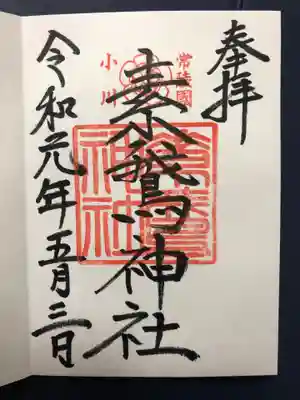 奉拝
常陸國
小川
素鵞神社
素鵞神社
令和元年五月三日